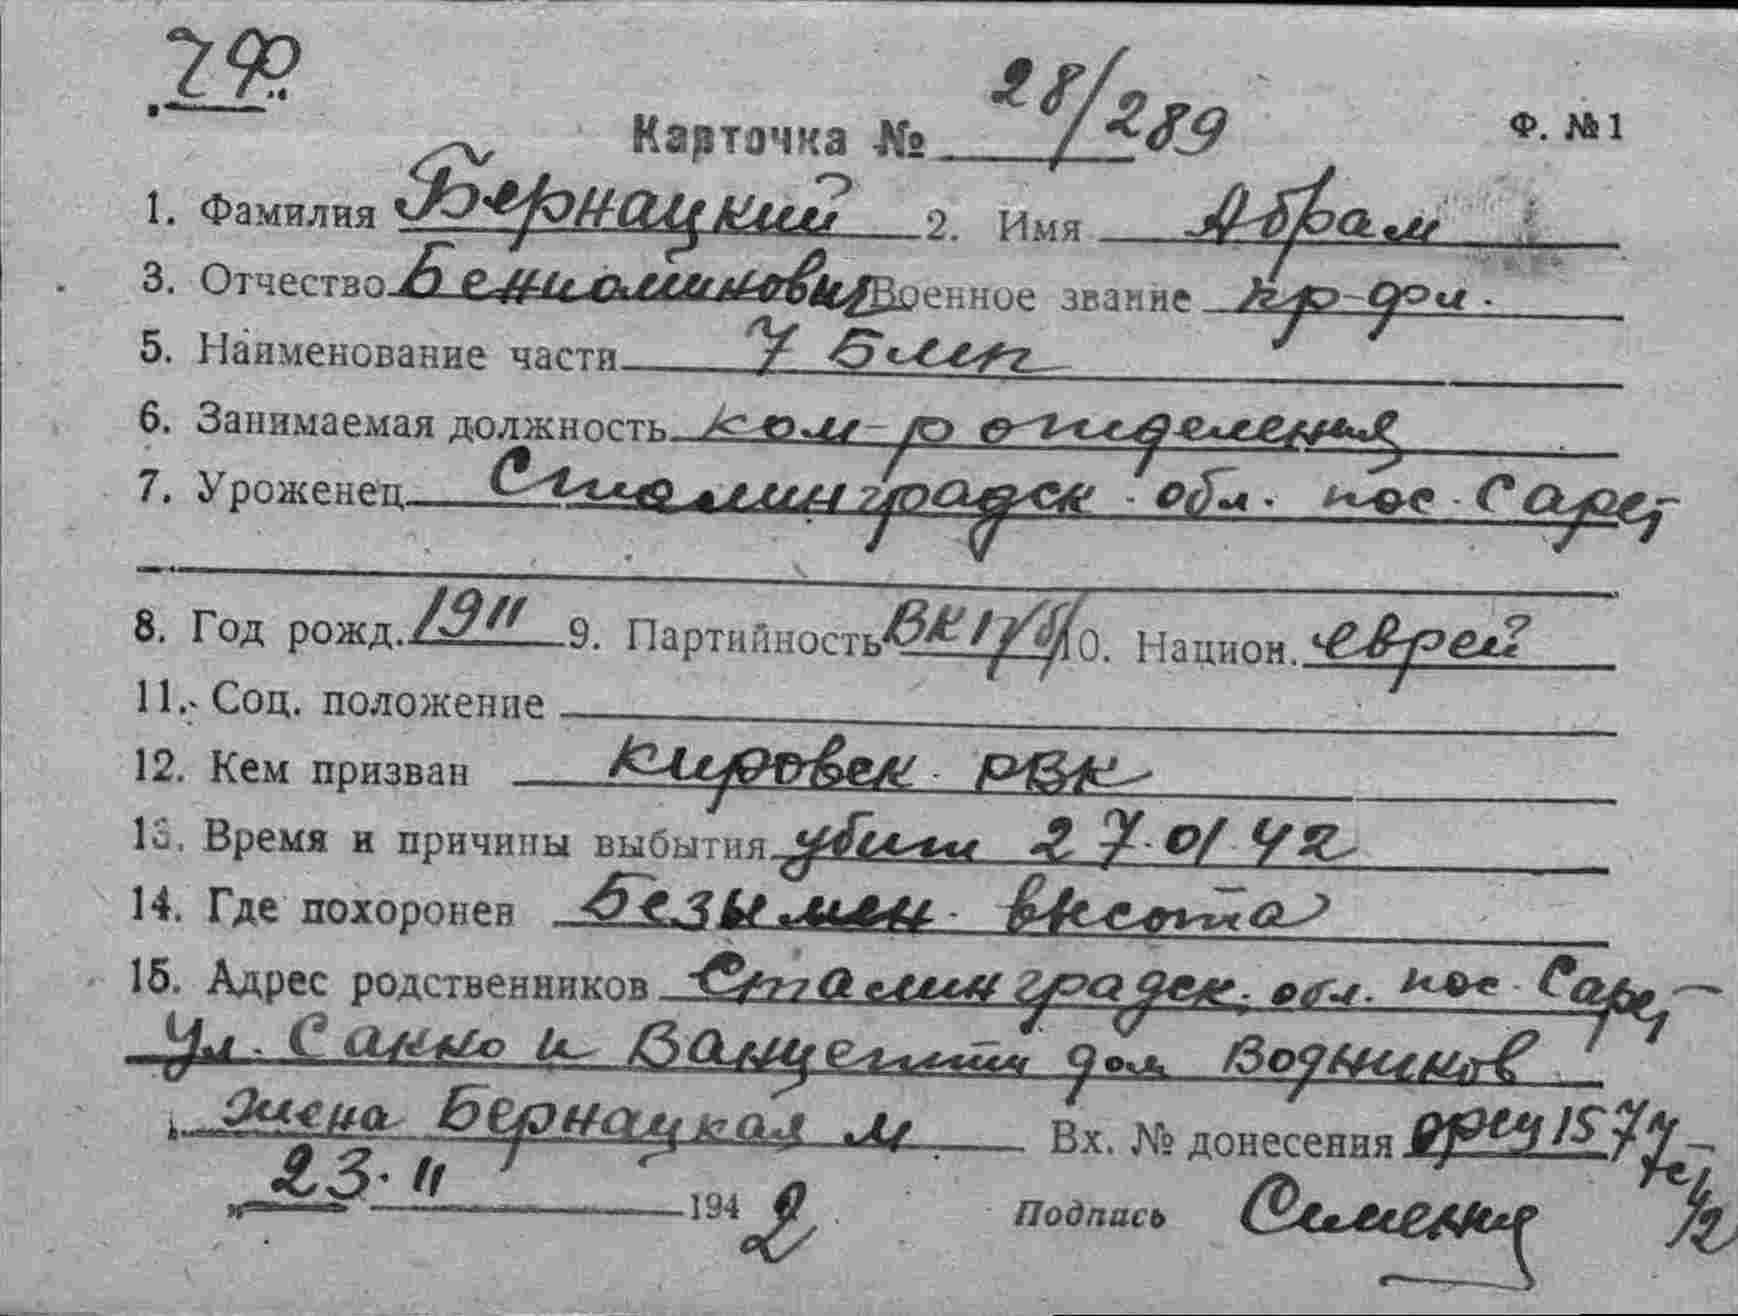 7Ф.
Карточка № 28/289 Ф. №1
1. Фамилия Бернацкий 2. Имя Абрам
3. Отчество Бениоминович Военное звание кр-фл.
5. Наименование части 7 Бмп
6. Занимаемая должность ком-р отделения
7. Уроженец Сталинградск. обл. пос. Сареп
8. Год рожд. 1911 9. Партийность ВКП/б/ 10. Национ. еврей
11. Соц. положение
12. Кем призван Кировск. РВК
13. Время и причины выбытия убит 27.01.42
14. Где похоронен Безымен. высота
15. Адрес родственников Сталинградск. обл. пос. Сареп
Ул. Сакко и Ванцетти дом Водников
жена Бернацкая М Вх. № донесения
„23.11 1942 Подпись